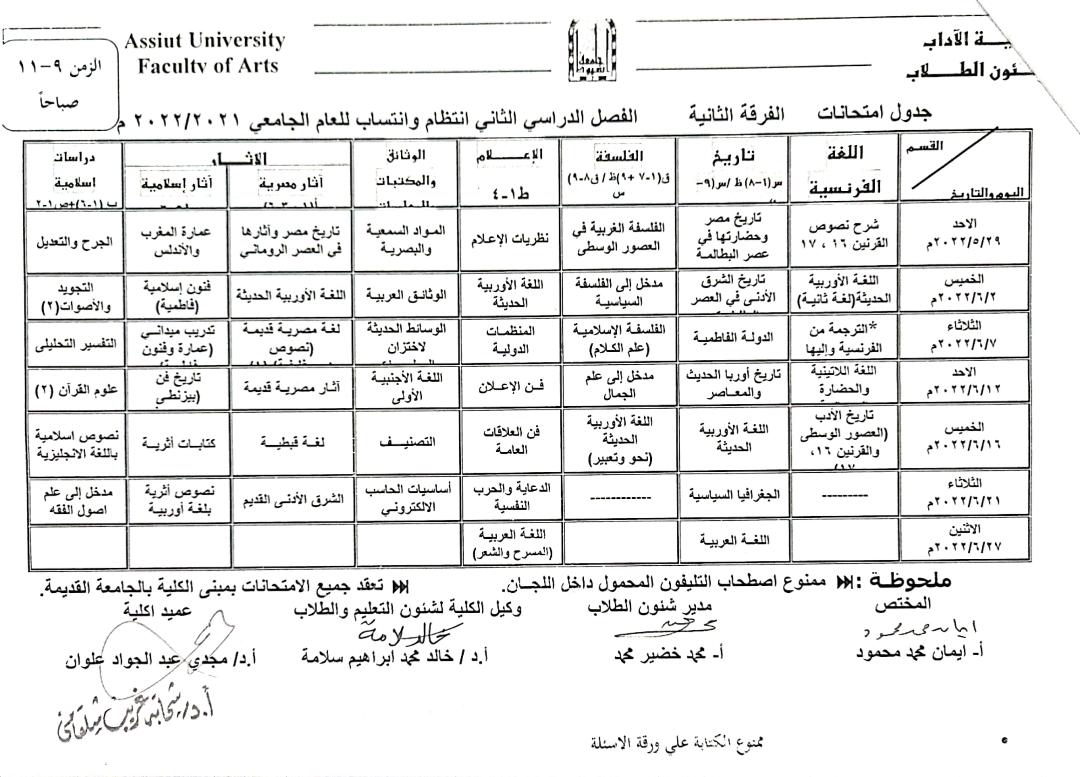 Assiut University
Faculty of Arts
ـية الآداب
ـئون الطـلاب
الزمن ٩-١١
صباحاً
جدول امتحانات الفرقة الثانية الفصل الدراسي الثاني انتظام وانتساب للعام الجامعي ٢٠٢٢/٢٠٢١ م
القسم
اليوم والتاريخ
اللغة الفرنسية
تاريخ
س(١-٨) ظ /س(٩-
الفلسفة
ق(١-٧ +٩)ظ / ق٨-٩)
س
الإعـلام
ط١-٤
الوثائق والمكتبات
الاثـار
آثار مصرية
آثار إسلامية
دراسات اسلامية
ب (١-٦)+ص١-٢
الاحد
٢٠٢٢/٥/٢٩م
شرح نصوص القرنين ١٦ ، ١٧
تاريخ مصر وحضارتها في عصر البطالمة
الفلسفة الغربية في العصور الوسطى
نظريات الإعلام
المواد السمعية والبصرية
تاريخ مصر وآثارها في العصر الروماني
عمارة المغرب والأندلس
الجرح والتعديل
الخميس
٢٠٢٢/٦/٢م
اللغة الأوربية الحديثة(لغة ثانية)
تاريخ الشرق الأدنى في العصر
مدخل إلى الفلسفة السياسية
اللغة الأوربية الحديثة
الوثائق العربية
اللغة الأوربية الحديثة
فنون إسلامية (فاطمية)
التجويد والأصوات(٢)
الثلاثاء
٢٠٢٢/٦/٧م
*الترجمة من الفرنسية وإليها
الدولة الفاطمية
الفلسفة الإسلامية (علم الكلام)
المنظمات الدولية
الوسائط الحديثة لاختزان
لغة مصرية قديمة (نصوص
تدريب ميداني (عمارة وفنون
التفسير التحليلى
الاحد
٢٠٢٢/٦/١٢م
اللغة اللاتينية والحضارة
تاريخ أوربا الحديث والمعاصر
مدخل إلى علم الجمال
فـن الإعـلان
اللغة الأجنبية الأولى
آثار مصرية قديمة
تاريخ فن (بيزنطي
علوم القرآن (٢)
الخميس
٢٠٢٢/٦/١٦م
تاريخ الأدب (العصور الوسطى والقرنين ١٦، ١٧)
اللغة الأوربية الحديثة
اللغة الأوربية الحديثة (نحو وتعبير)
فن العلاقات العامة
التصنيـف
لغـة قبطيـة
كتابـات أثريـة
نصوص اسلامية باللغة الانجليزية
الثلاثاء
٢٠٢٢/٦/٢١م
---------
الجغرافيا السياسية
-----------
الدعاية والحرب النفسية
أساسيات الحاسب الالكتروني
الشرق الأدنى القديم
نصوص أثرية بلغة أوربية
مدخل إلى علم اصول الفقه
الاثنين
٢٠٢٢/٦/٢٧م
اللغة العربية
اللغة العربية (المسرح والشعر)
ملحوظـة : ممنوع اصطحاب التليفون المحمول داخل اللجـان. تعقد جميع الامتحانات بمبنى الكلية بالجامعة القديمة.
المختص مدير شئون الطلاب وكيل الكلية لشئون التعليم والطلاب عميد اكلية
أ- ايمان محمد محمود أ- محمد خضير محمد أ.د / خالد محمد ابراهيم سلامة أ.د/ مجدي عبد الجواد علوان
ممنوع الكتابة علي ورقة الاسئلة